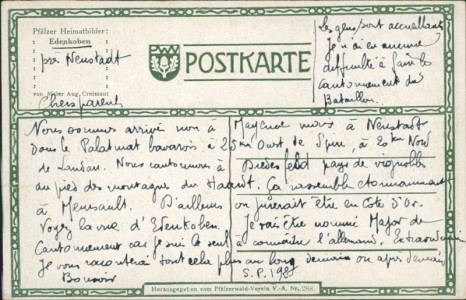 Pfälzer Heimatbilder:
Edenkoben
près Neustadt
von Maler Aug. Croissant
POSTKARTE
Les gens sont accueillants
Je n'ai eu aucune
difficulté à faire le
cantonnement du
Bataillon.
Chers parents
Nous sommes arrivé non à Mayence mais à Neustadt
Dans le Palatinat bavarois à 25 km Ouest de Spire, à Nord
de Landau. Nous cantonnons à Diedesfeld pays de vignobles
au pied des montagnes du Haardt. Ça ressemble étonnamment
à Meursault. D'ailleurs on jurerait être en Côte d'Or.
Voyez la vue d'Edenkoben. Je vais être nommé Major de
Cantonnement car je suis le seul à connaître l'allemand. Extraordinaire
Je vous raconterai tout cela plus au long demain ou après demain
Bonsoir S.P. 198
Herausgegeben vom Pfälzerwald-Verein V.-A. Nr. 268.